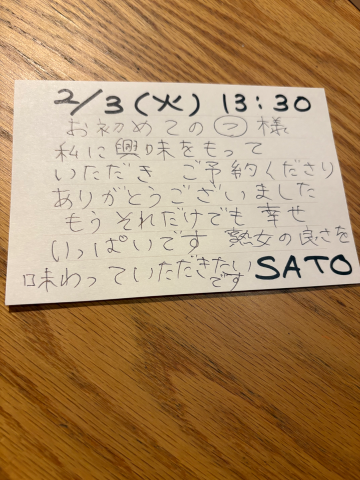 2/3(火) 13:30
お初めての㋡様
私に興味をもって
いただき ご予約くださり
ありがとうございました
もう それだけでも 幸せ
いっぱいです 熟女の良さを
味わっていただきたいです SATO